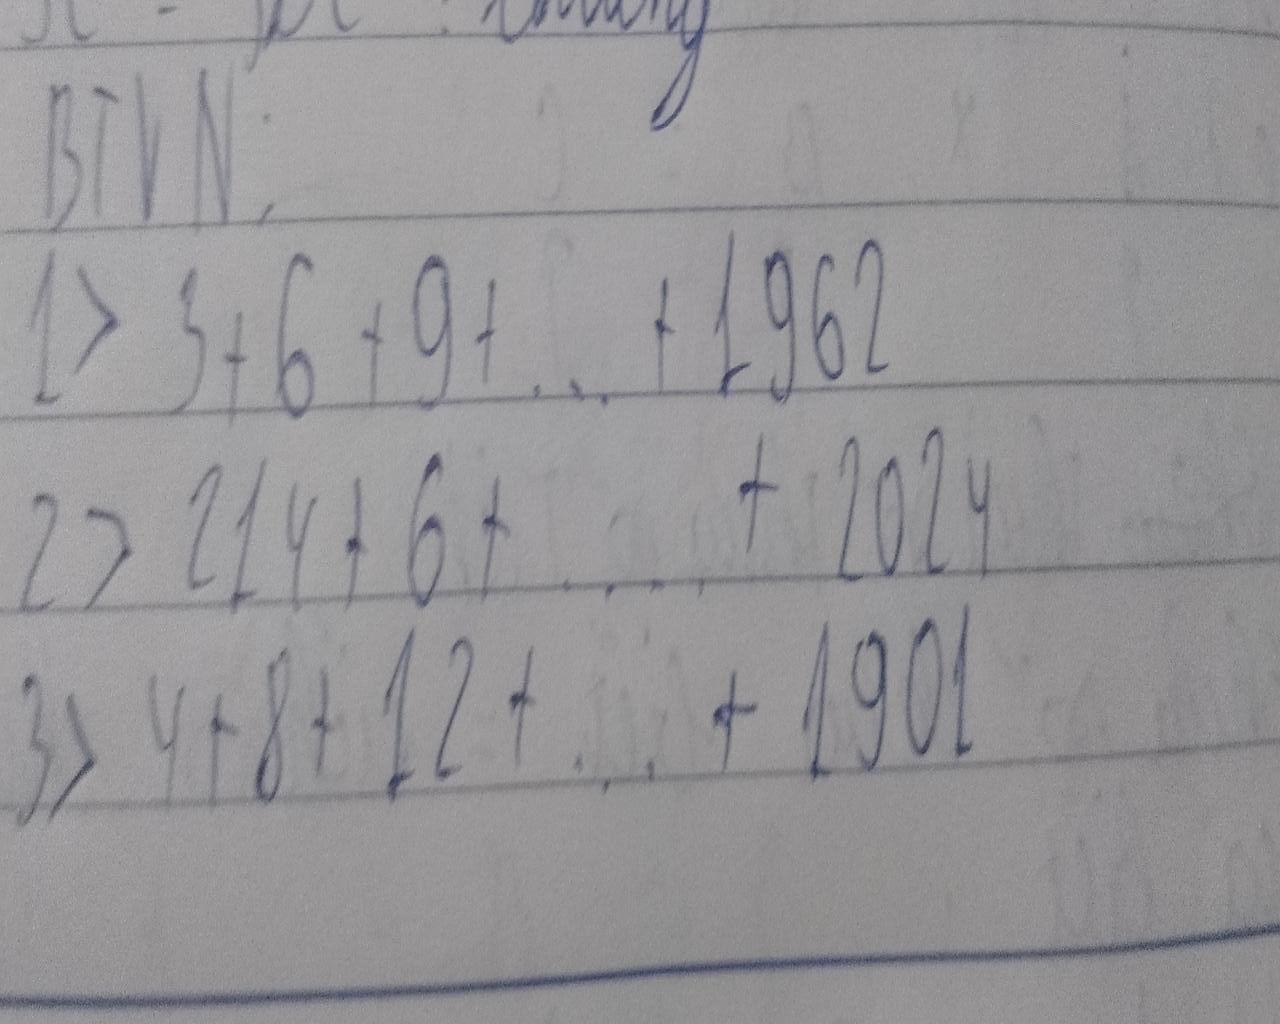 BTVN:
1> 3+6+9+ ... +1962
2> 214+6+ .... + 2024
3> 4+8+12+ .... + 1901